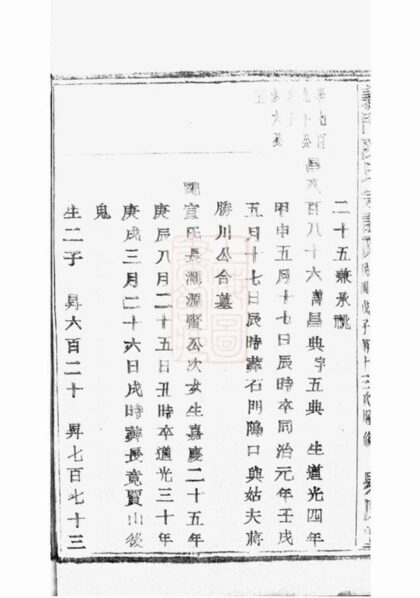 二十五兼承祧
昌八百八十六 昌典字五典 生道光四年
甲申五月十七日辰時卒同治元年壬戌
五月十七日辰時葬石門隝口與姑夫蔣
勝川公合墓
配宣氏長源賢公次女生嘉慶二十五年
庚辰八月二十五日丑時卒道光三十年
庚戌三月二十六日戌時葬長竟賢山後
鬼
生二子 昇六百二十 昇七百七十三